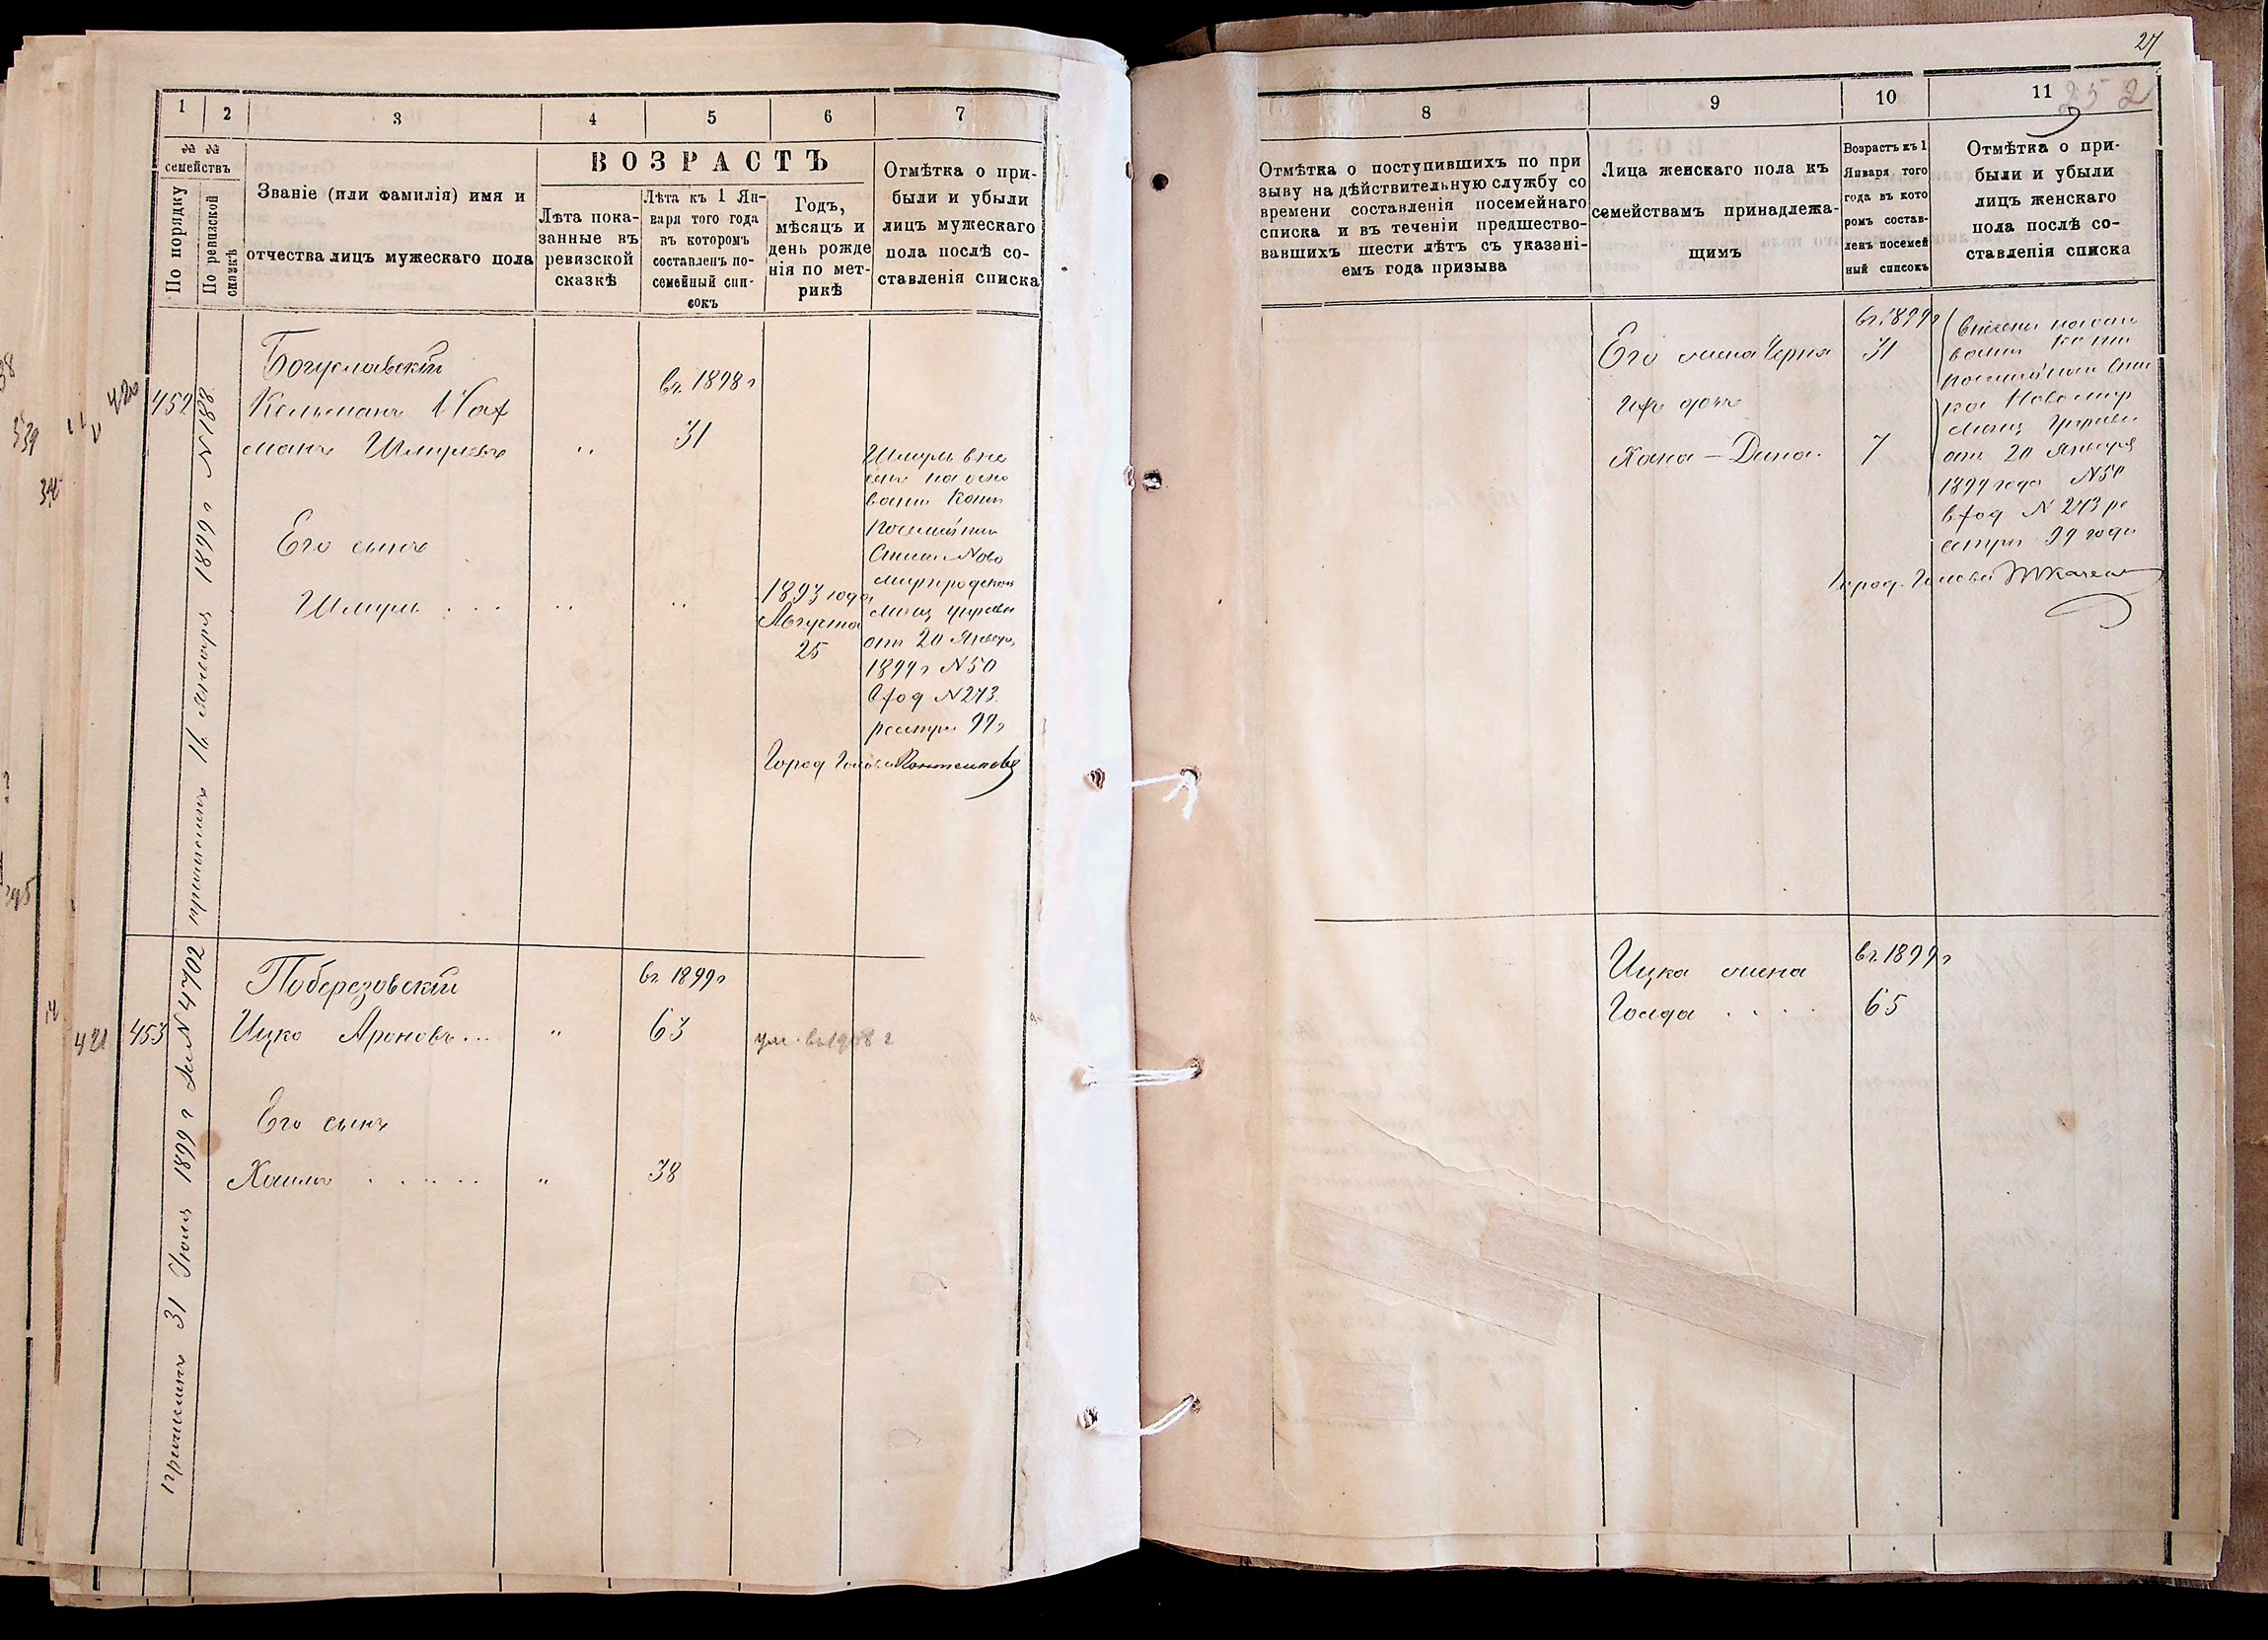 27
252
1
2
3
4
5
6
7
№ №
семействъ
По порядку
По ревизской
сказкѣ
Званіе (или фамилія) имя и
отчества лицъ мужескаго пола
ВОЗРАСТЪ
Лѣта пока-
занные въ
ревизской
сказкѣ
Лѣта къ 1 Ян-
варя того года
въ которомъ
составленъ по-
семейный спи-
сокъ
Годъ,
мѣсяцъ и
день рожде
нія по мет-
рикѣ
Отмѣтка о при-
были и убыли
лицъ мужескаго
пола послѣ со-
ставленія списка
420
452
Богуславскій
Кельманъ
манъ Шмулевъ
въ 1898 г
31
Его сынъ
Шмуль
1893 года
Августа
25
Шмуль вне
сенъ на осно
ваніи Копіи
Посемейнаго
Списка Ново
миргородской
Мѣщ Управы
от 20 Января
1899 г N 50
вход N 273
реестра 99 г
Город Голова
причисленъ 16 января 1899 г N 188
421
453
Поберезовскій
въ 1899 г
Ицко Ароновъ
63
ум. въ 1908 г
Его сынъ
Хаимъ
38
причисленъ 31 Іюля 1899 г N 4702
8
9
10
11
Отмѣтка о поступившихъ по при
зыву на дѣйствительную службу со
времени составленія посемейнаго
списка и въ теченіи предшество-
вавшихъ шести лѣтъ съ указані-
емъ года призыва
Лица женскаго пола къ
семействамъ принадлежа-
щимъ
Возрастъ къ 1
Января того
года въ кото
ромъ состав-
ленъ посемей
ный списокъ
Отмѣтка о при-
были и убыли
лицъ женскаго
пола послѣ со-
ставленія списка
въ 1899 г
Его жена Черня
31
Ихъ дочь
Хана-Дина
7
внесены на осно
ваніи Копіи
посемейнаго Спис
ка Новомир
Мѣщ Управы
от 20 Января
1899 года N 50
вход N 273 ре
естра 99 года
Город. Голова
Ицка жена
въ 1899 г
Голда
65